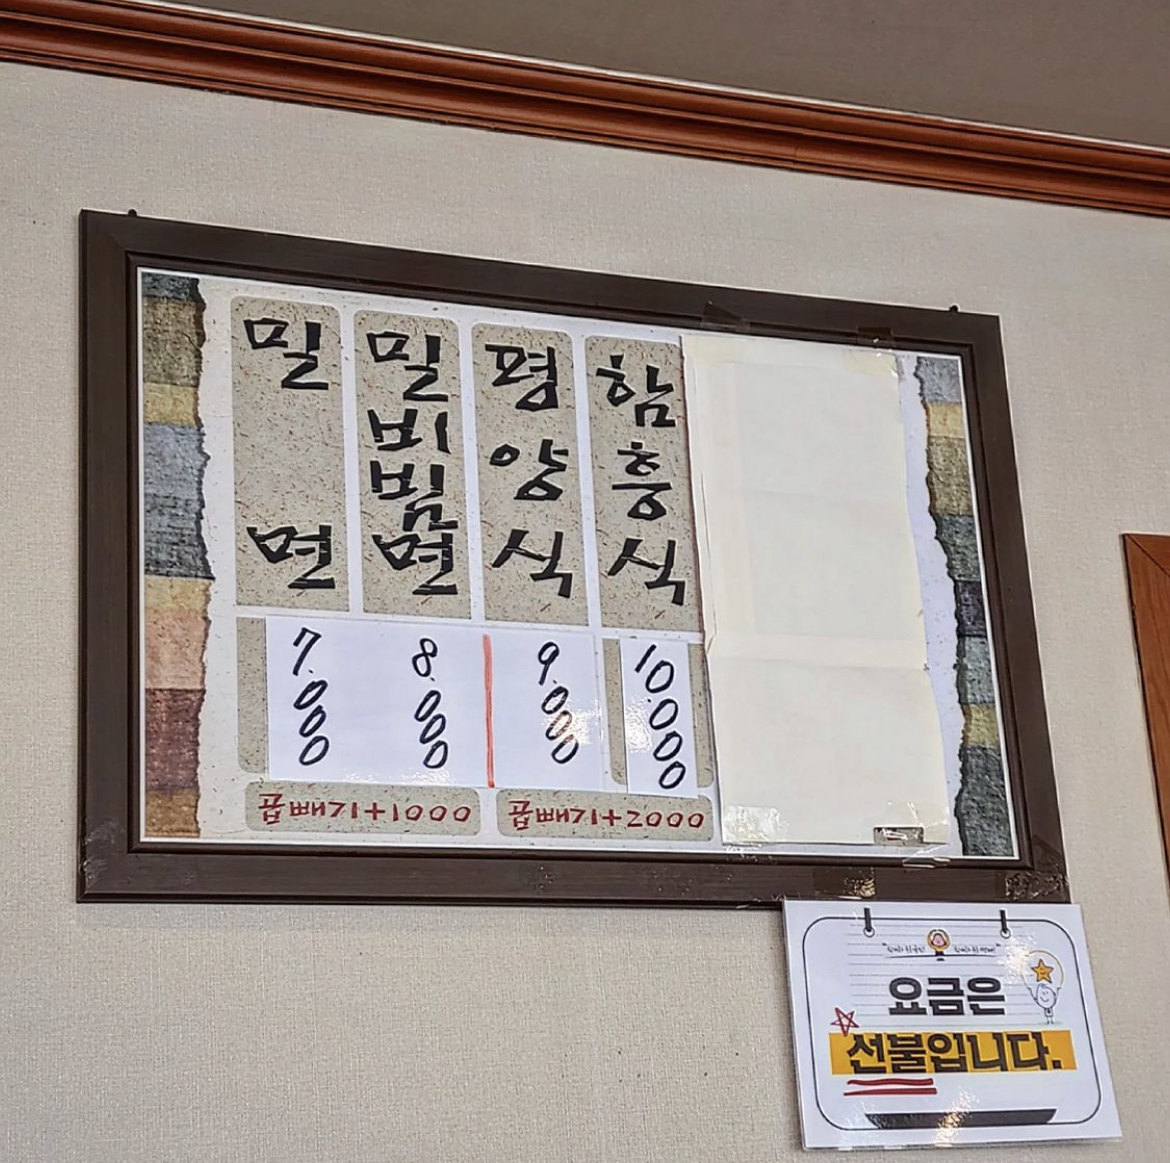 밀면
밀비빔면
평양식
함흥식
7.000
8.000
9.000
10.000
곱빼기+1000
곱빼기+2000
요금은
선불입니다.